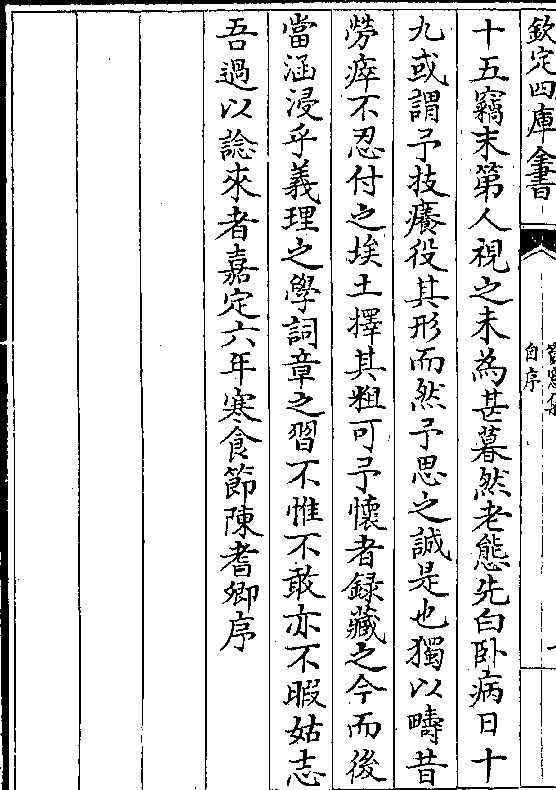 欽定四庫全書
自序
十五竊末第人視之未為甚暮然老態先白卧病日十
九或謂予技癢役其形而然予思之誠是也獨以疇昔
勞瘁不忍付之埃土擇其粗可予懷者録藏之今而後
當涵浸乎義理之學詞章之習不惟不敢亦不暇姑志
吾過以諗來者嘉定六年寒食節陳耆卿序